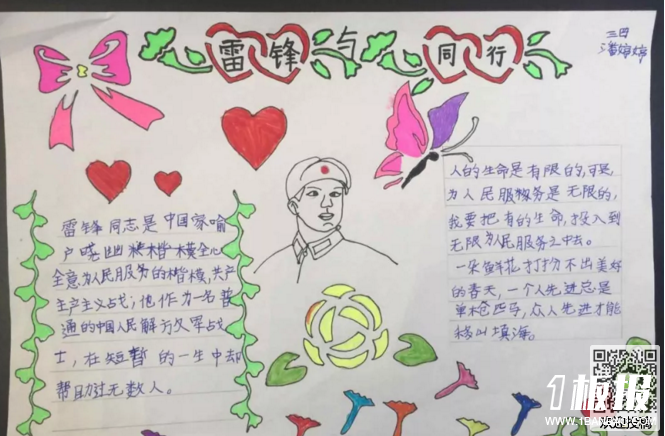 雷锋与同行
三四
潘婷婷
雷锋同志是中国家喻
户
全意为人民服务的楷模，共产
主产主义战士；他作为一名普
通的中国人民解放军战
士，在短暂的一生中却
帮助过无数人。
人的生命是有限的，可是
为人民服务是无限的，
我要把有的生命，投入到
无限为人民服务之中去。
一朵鲜花打扮不出美好
的春天，一个人先进总是
单枪匹马，众人先进才能
移山填海。
1板报